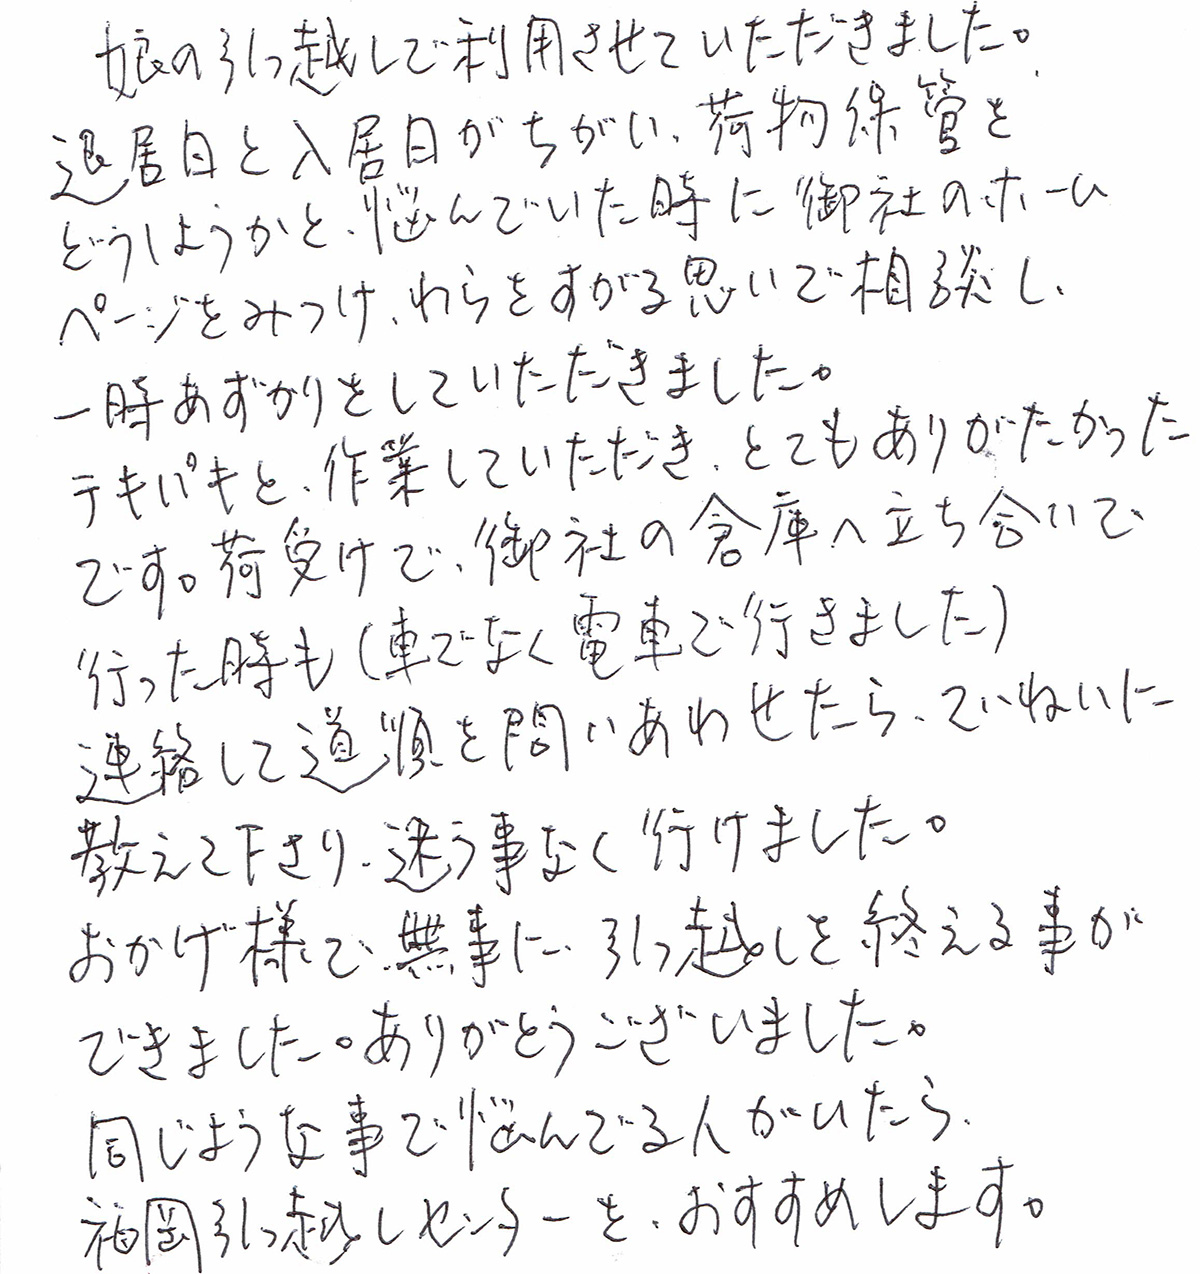 娘の引っ越しで利用させていただきました。
退居日と入居日がちがい、荷物保管を
どうしようかと、悩んでいた時に御社のホーム
ページをみつけ、わらをすがる思いで相談し、
一時あずかりをしていただきました。
テキパキと、作業していただき、とてもありがたかった
です。荷受けで、御社の倉庫へ立ち合いで
行った時も(車でなく電車で行きました)
連絡して道順を問いあわせたら、ていねいに
教えて下さり、迷う事なく行けました。
おかげ様で、無事に、引っ越しを終える事が
できました。ありがとうございました。
同じような事で悩んでる人がいたら、
福岡引っ越しセンターを、おすすめします。